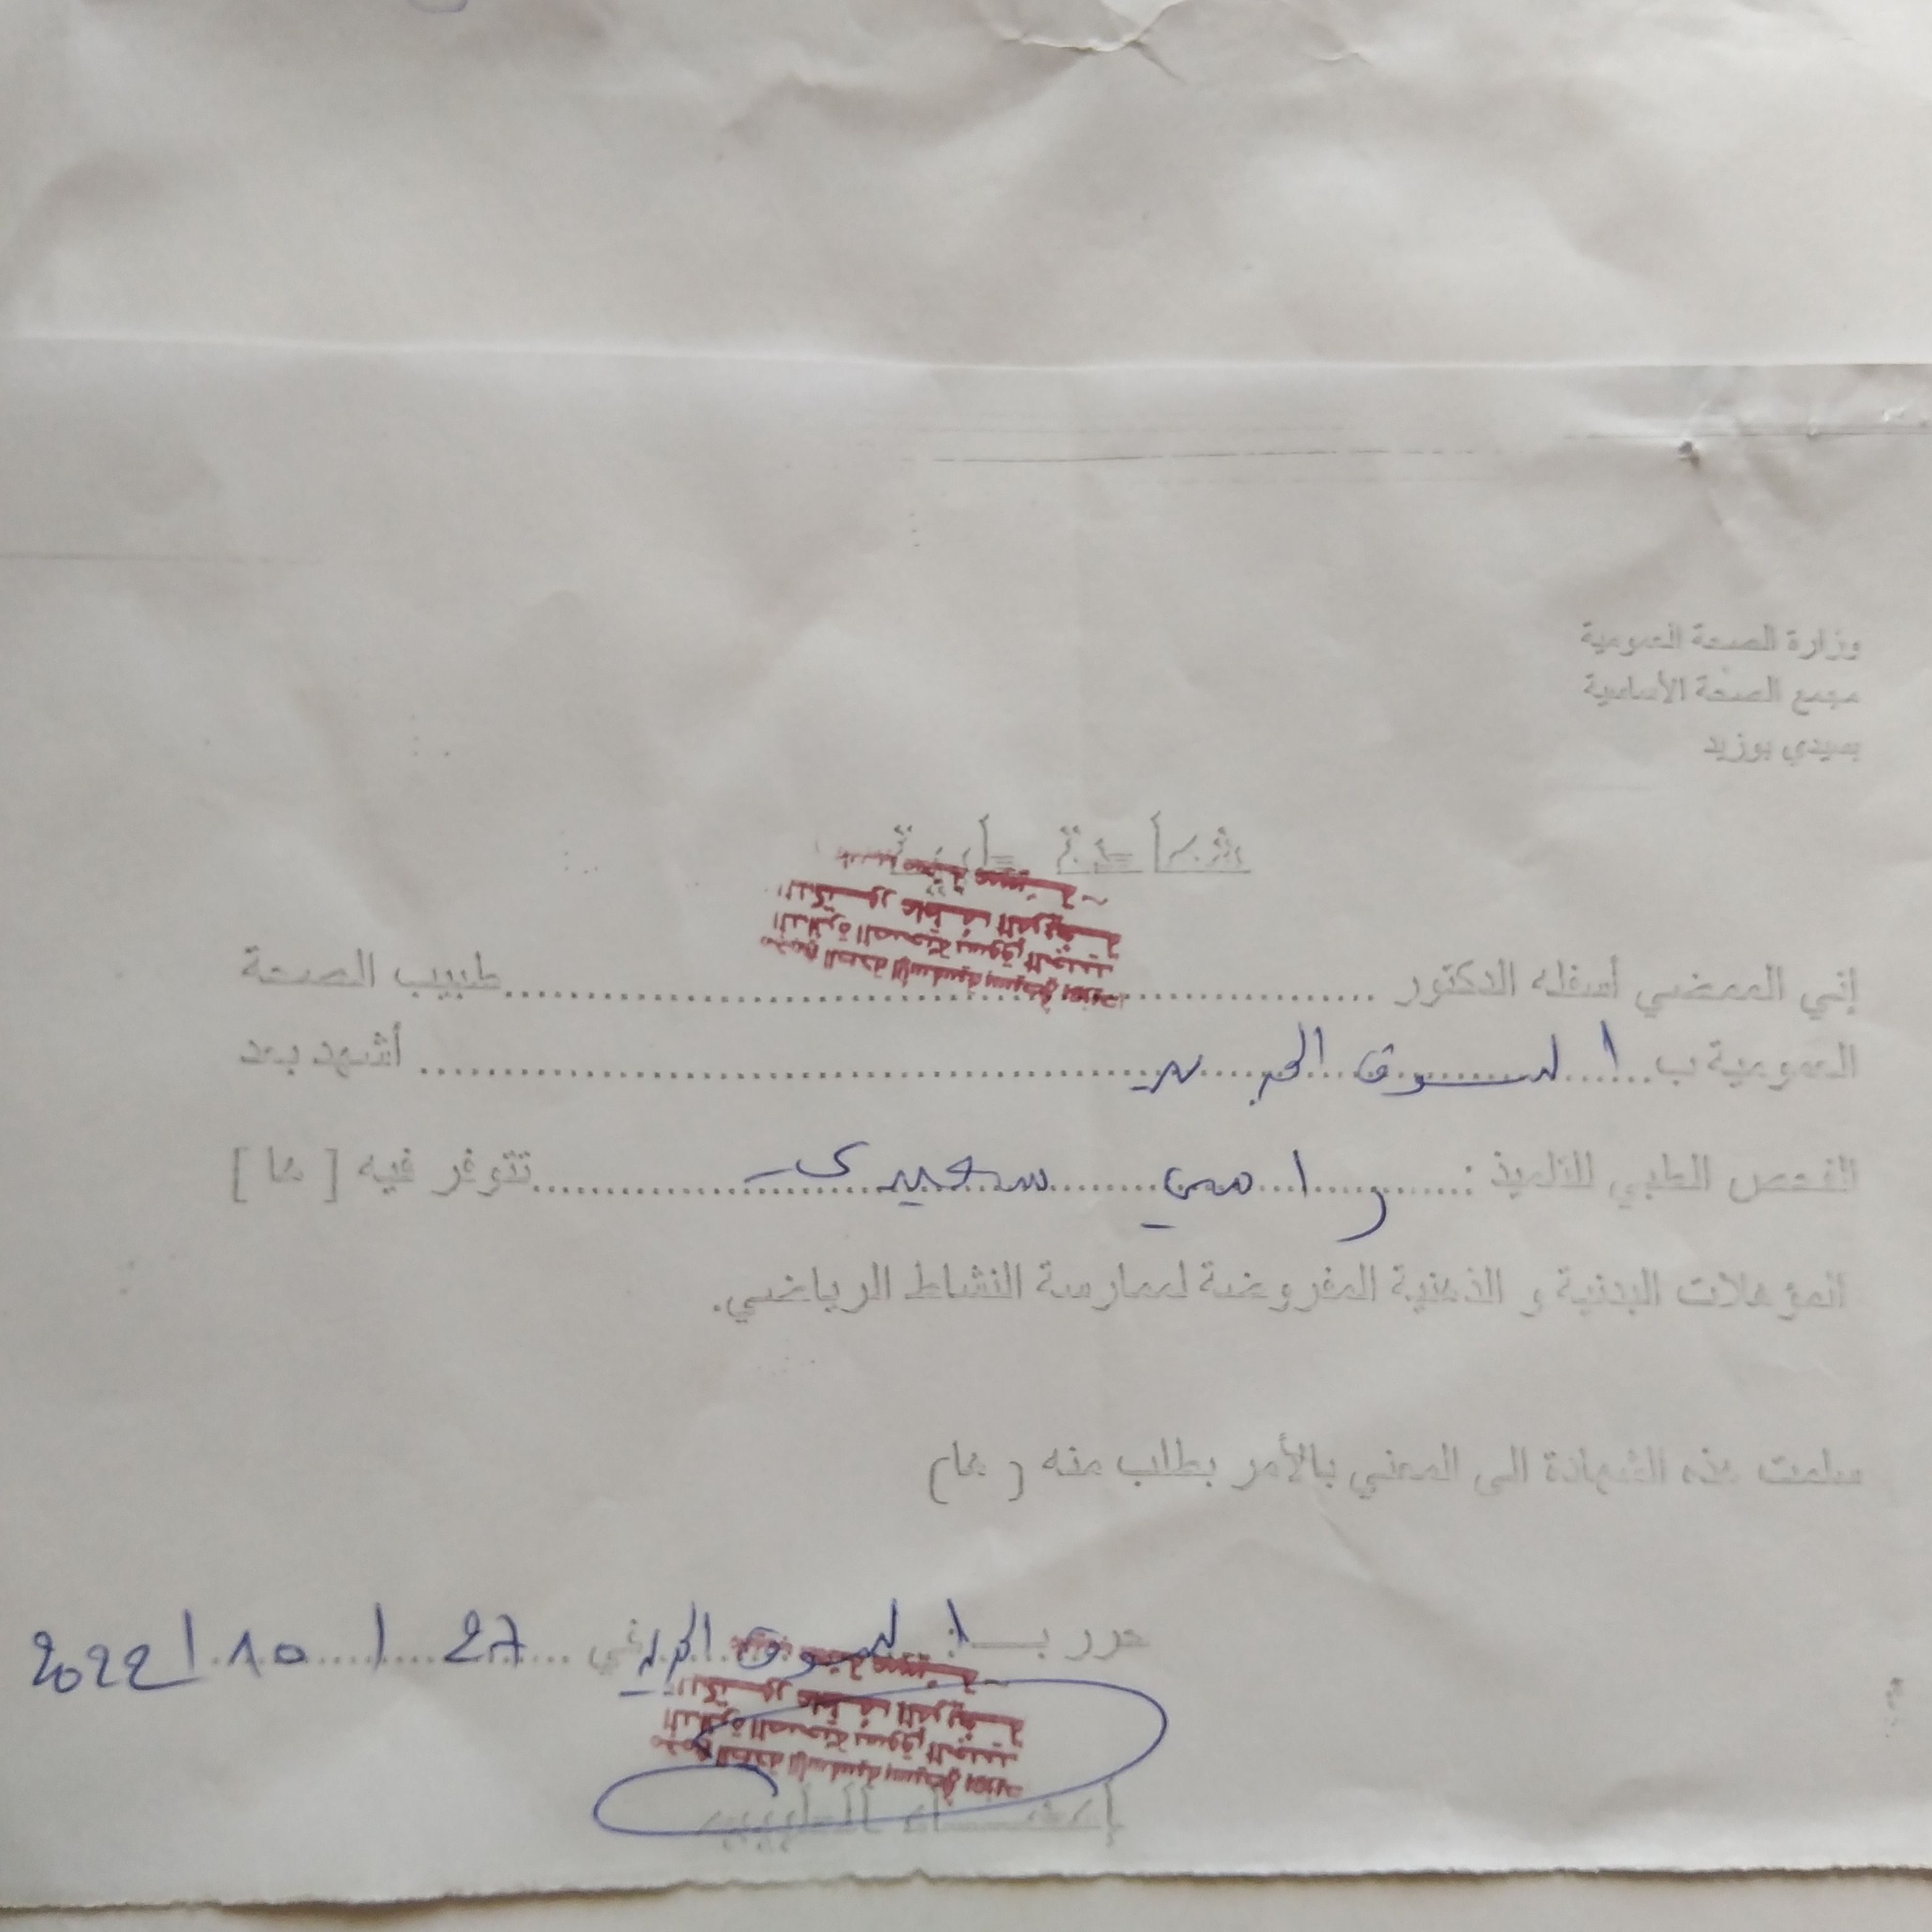 وزارة الصحة العمومية
مجمع الصحة الأساسية
بسيدي بوزيد
شهادة طبية
إني الممضي أسفله الدكتور .................... طبيب الصحة
العمومية ب... السوق الجديد .................... أشهد بعد
الفحص الطبي للتلميذ : ..... رامي ..... سعيدي ..... تتوفر فيه [ ها ]
المؤهلات البدنية و الذهنية المفروضة لممارسة النشاط الرياضي.
سلمت هذه الشهادة الى المعني بالأمر بطلب منه ( ها)
حرر بـ: السوق الجديد في ... 27 / 10 / 2022
إمضاء الطبيب